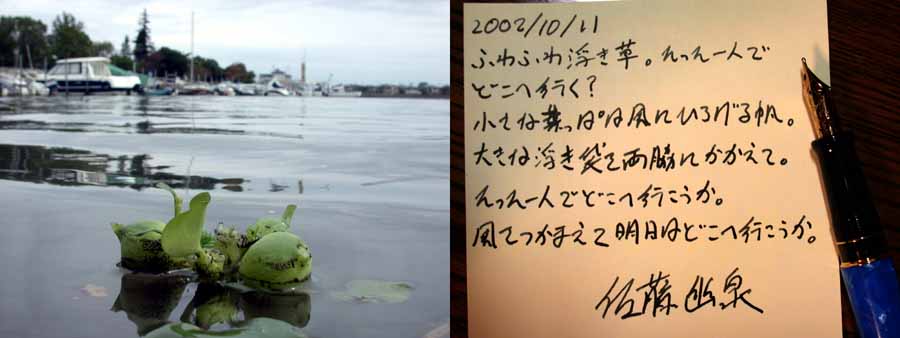 2002/10/11
ふわふわ浮き草。たった一人で
どこへ行く?
小さな葉っぱは風にひろげる帆。
大きな浮き袋を両脇にかかえて。
たった一人でどこへ行こうか。
風をつかまえて明日はどこへ行こうか。
佐藤幽泉